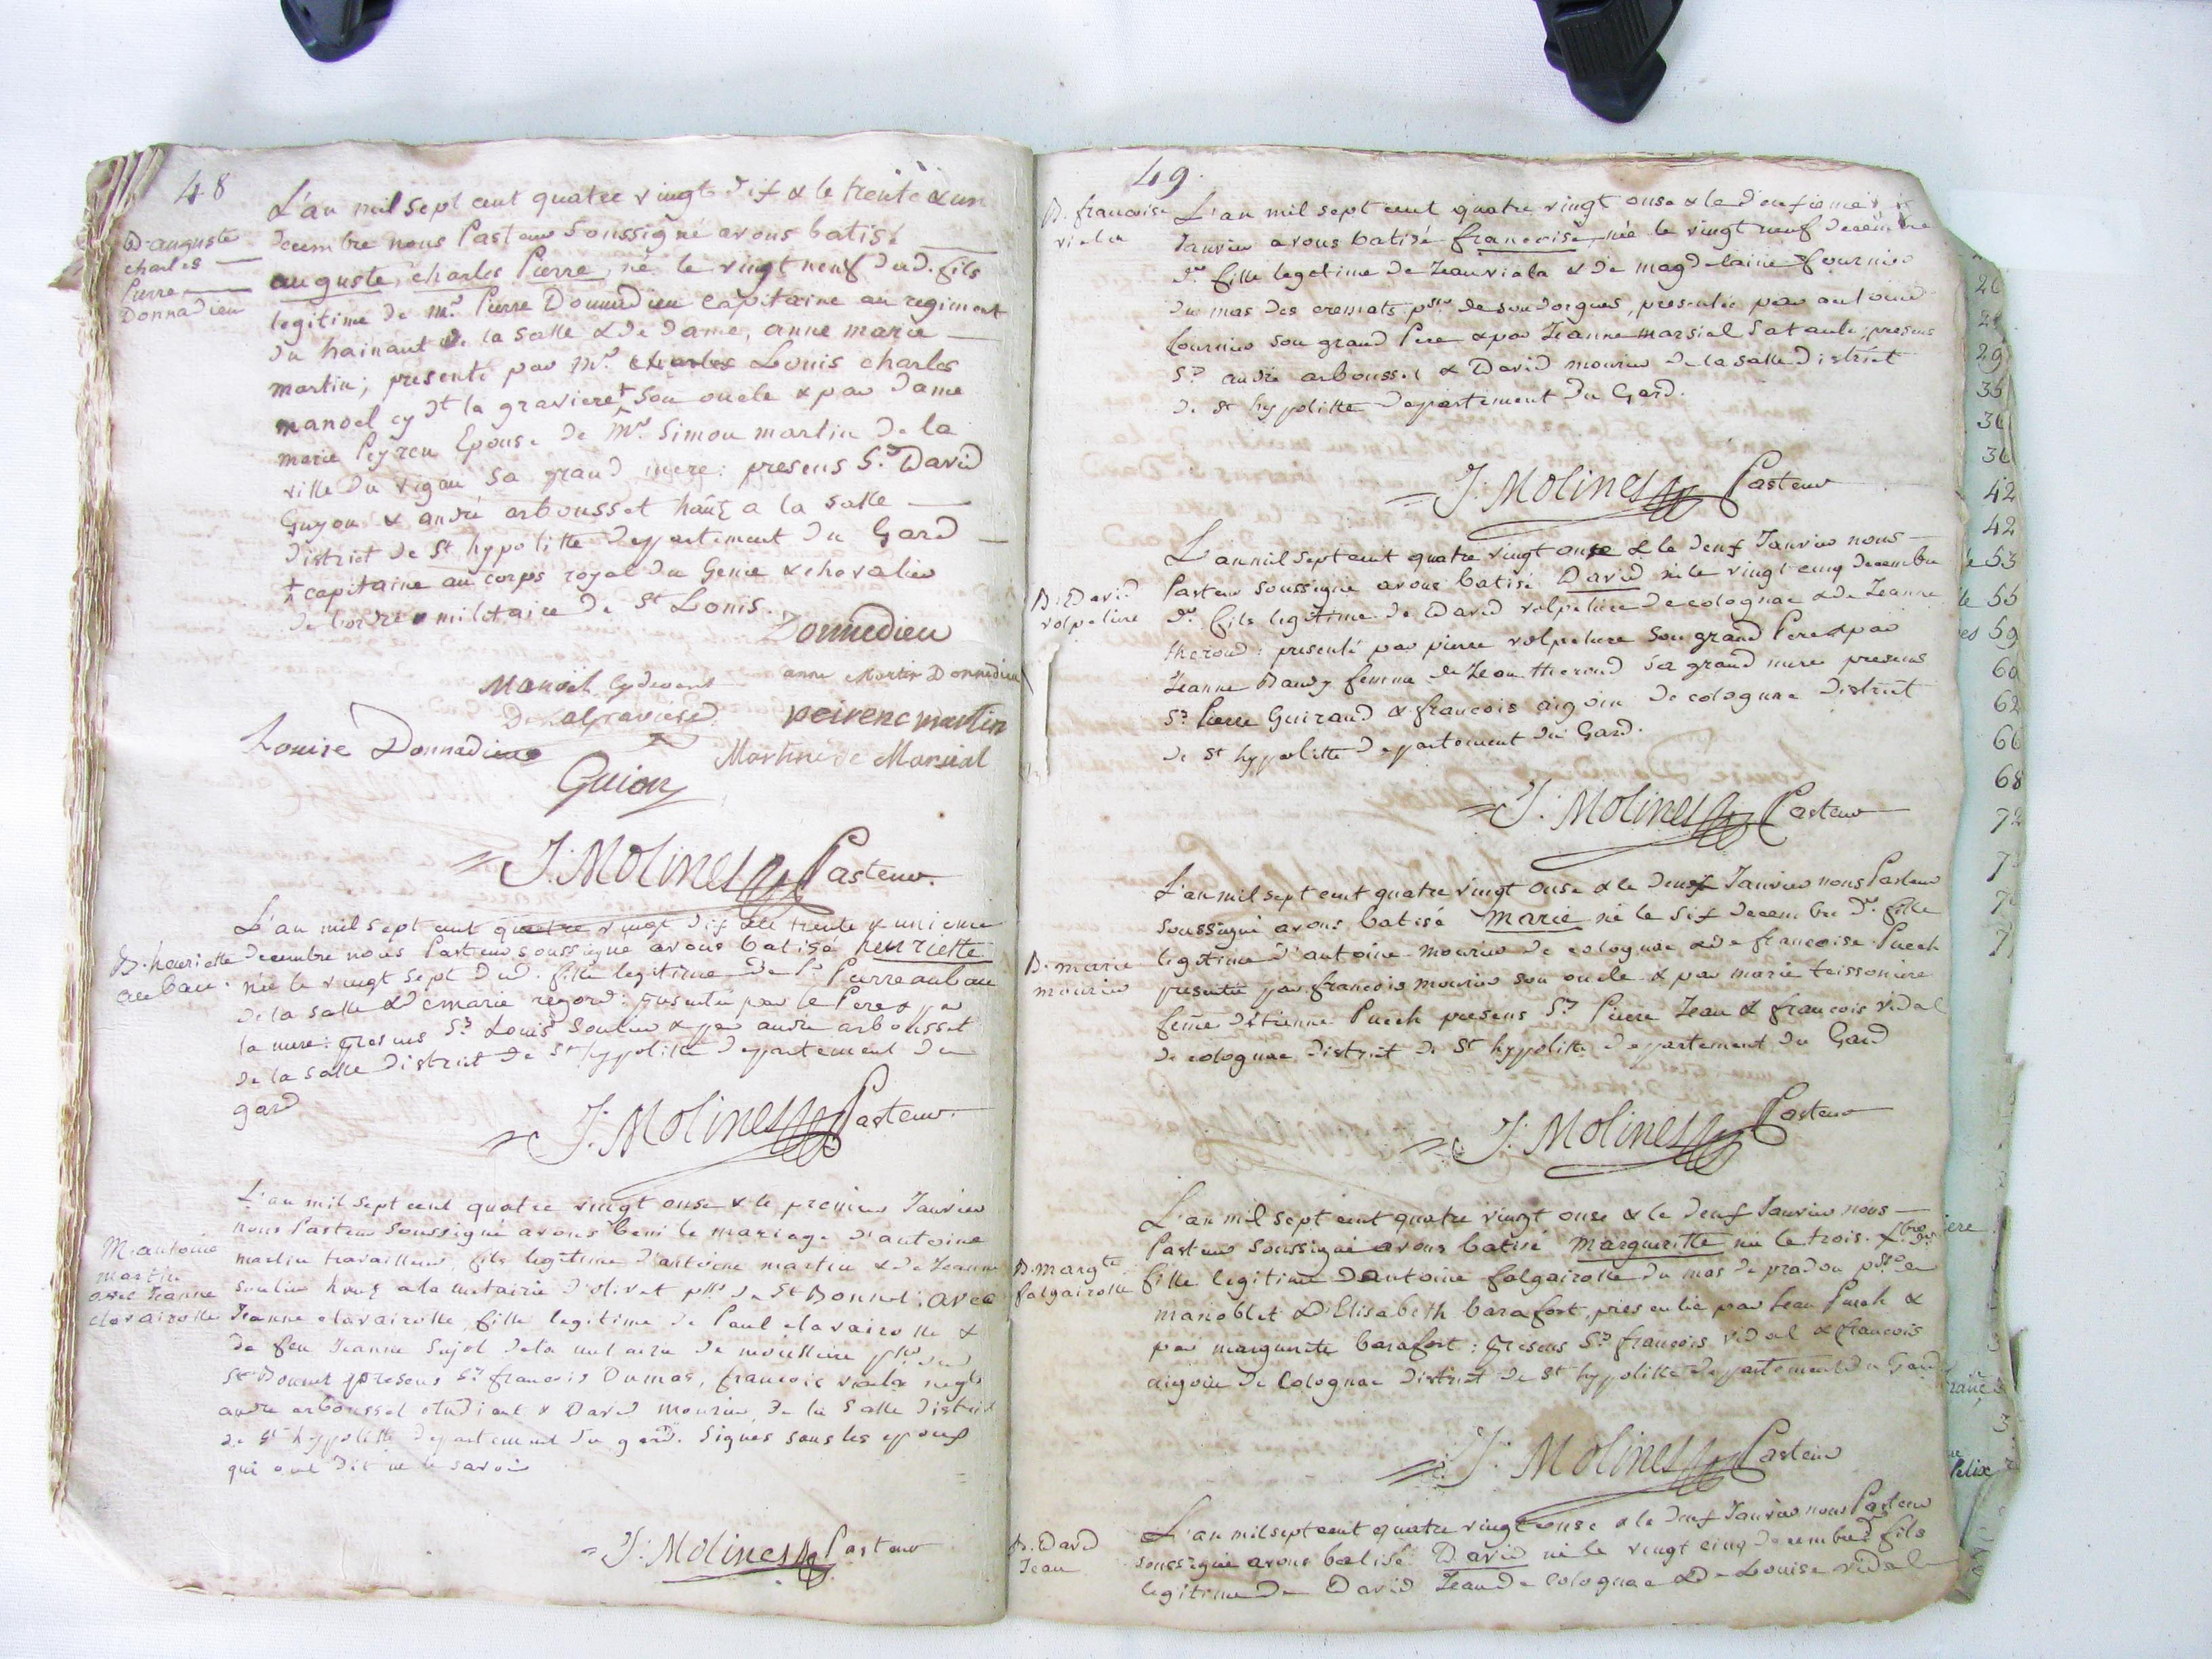 48
B. auguste
charles
Pierre
Donnadieu
L'an mil sept cent quatre vingt dix & le trente & un
decembre nous Pasteur Soussigné avons batisé
auguste, charles Pierre, né le vingt neuf dud. fils
legitime de mr. Pierre Donnadieu capitaine au regiment
du hainaut de la salle & de dame, anne marie
martin; presenté par mr. charles Louis charles
manoel cy dt la graviere + son oncle & par dame
marie Peyren Epouse de mr. Simon martin de la
ville du vigan sa grand mere: presens Sr. David
Guyon & andré arbousset hañs a la salle
district de St hypolitte departement du Gard
+ capitaine au corps royal du Genie & chevalier
de l'ordre militaire de St Louis.
Donnedieu
Manoël cydevant anne Martin Donnedieu
De Lagraviere peirenc martin
Louise Donnadieu Martin de Marsial
Guion
J. Molines Pasteur.
B. henriette
auban.
L'an mil sept cent quatre vingt dix & le trente & unieme
decembre nous Pasteur soussigné avons batisé henriette
née le vingt sept dud. fille legitime de Sr Pierre auban
de la salle & de marie regord: presentée par le Pere & par
la mere: presens Srs Louis Soulier & par andré arbousset
de la salle district de St hypolitte departement du
gard
J. Molines Pasteur.
M. antoine
martin
avec Jeanne
clavairolle
L'an mil sept cent quatre vingt onse & le premier Janvier
nous Pasteur soussigné avons beni le mariage d'antoine
martin travailleur, fils legitime d'antoine martin & de Jeanne
soulier hañs a la metairie d'olivet psse de St Bonnet; avec
Jeanne clavairolle, fille legitime de Paul clavairolle &
de feu Jeanne Sujol de la metairie de psse dud
St Bonnet presens Srs francois Dumas, francois viala negt
andré arbousset etudiant & David mourier, de la Salle district
de St hypolitte departement du gard. Signés sans les epoux
qui ont dit ne le savoir
J. Molines Pasteur
49.
B. francoise
viala
L'an mil sept cent quatre vingt onse & le deuxieme
Janvier avons batisé francoise, née le vingt neuf decembre
dr. fille legetime de Jean viala & de magdelaine fournier
du mas des cremats psse de soudorgues, presentée par antoine
fournier son grand Pere & par Jeanne marsial sa tante; presens
Srs andré arbousset & David mourier de la salle district
de St hypolitte departement du Gard.
J. Molines Pasteur
B. David
volpeliere
L'an mil sept cent quatre vingt onse & le deux Janvier nous
Pasteur soussigné avons batisé David né le vingt cinq decembre
dr. fils legitime de David volpeliere de colognac & de Jeanne
theroud: presenté par pierre volpeliere son grand Pere & par
Jeanne Bauzy femme de Jean theroud sa grand mere presens
Srs Pierre Guiraud & francois aigoin de colognac district
de St hypolitte departement du Gard.
J. Molines Pasteur
B. marie
mourier
L'an mil sept cent quatre vingt onse & le deux Janvier nous Pasteur
soussigné avons batisé marie né le six decembre dr. fille
legitime d'antoine mourier de colognac & de francoise Puech
presentée par francois mourier son oncle & par marie teissonniere
feme d'Etienne Puech presens Srs Pierre Jean & francois vidal
de colognac district de St hypolitte departement du Gard
J. Molines Pasteur
B. margte
falgairolle
L'an mil sept cent quatre vingt onse & le deux Janvier nous
Pasteur soussigné avons batisé Margueritte née le trois Xbre dr
fille legitime d'antoine falgairolle du mas de pradon psse de
manoblet & d'Elisabeth barafort, presentée par Jean Puech &
par marguerite barafort: presens Srs francois vidal & francois
aigoin de Colognac district de St hypolitte departement du Gard
J. Molines Pasteur
B. David
Jean
L'an mil sept cent quatre vingt onse & le deux Janvier nous Pasteur
soussigné avons batisé David né le vingt cinq decembre dr fils
legitime de David Jean de Colognac & de Louise vidal
26
29
35
36
36
42
42
53
55
59
60
62
66
68
72
felix